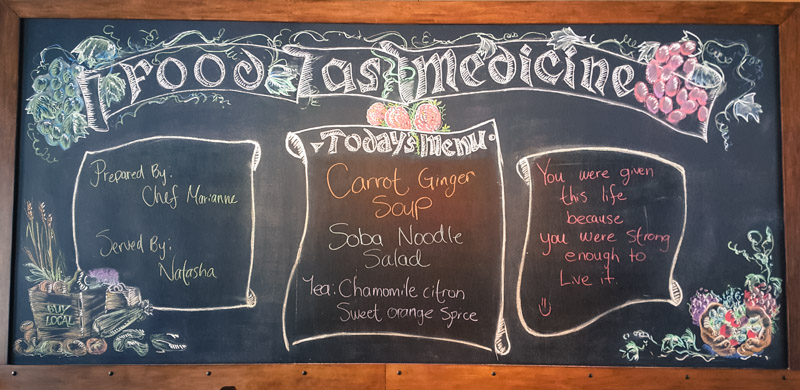 Food as medicine
Prepared By:
Chef Marianne
Served By:
Natasha
BUY
LOCAL
Todays menu
Carrot Ginger
Soup
Soba Noodle
Salad
Tea: Chamomile citron
Sweet orange Spice
You were given
this life
because
you were strong
enough to
Live it.